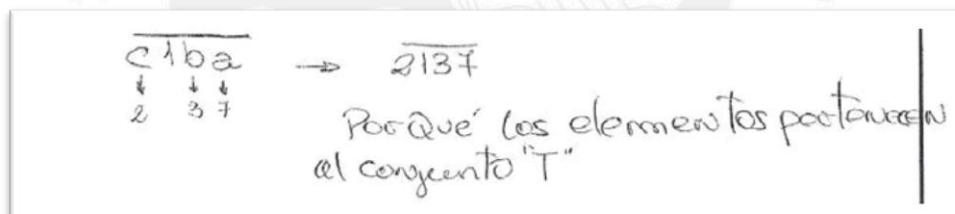 c1ba → 2137
↓ ↓ ↓
2 3 7
PorQué los elementos partenecen
al conjunto "T"